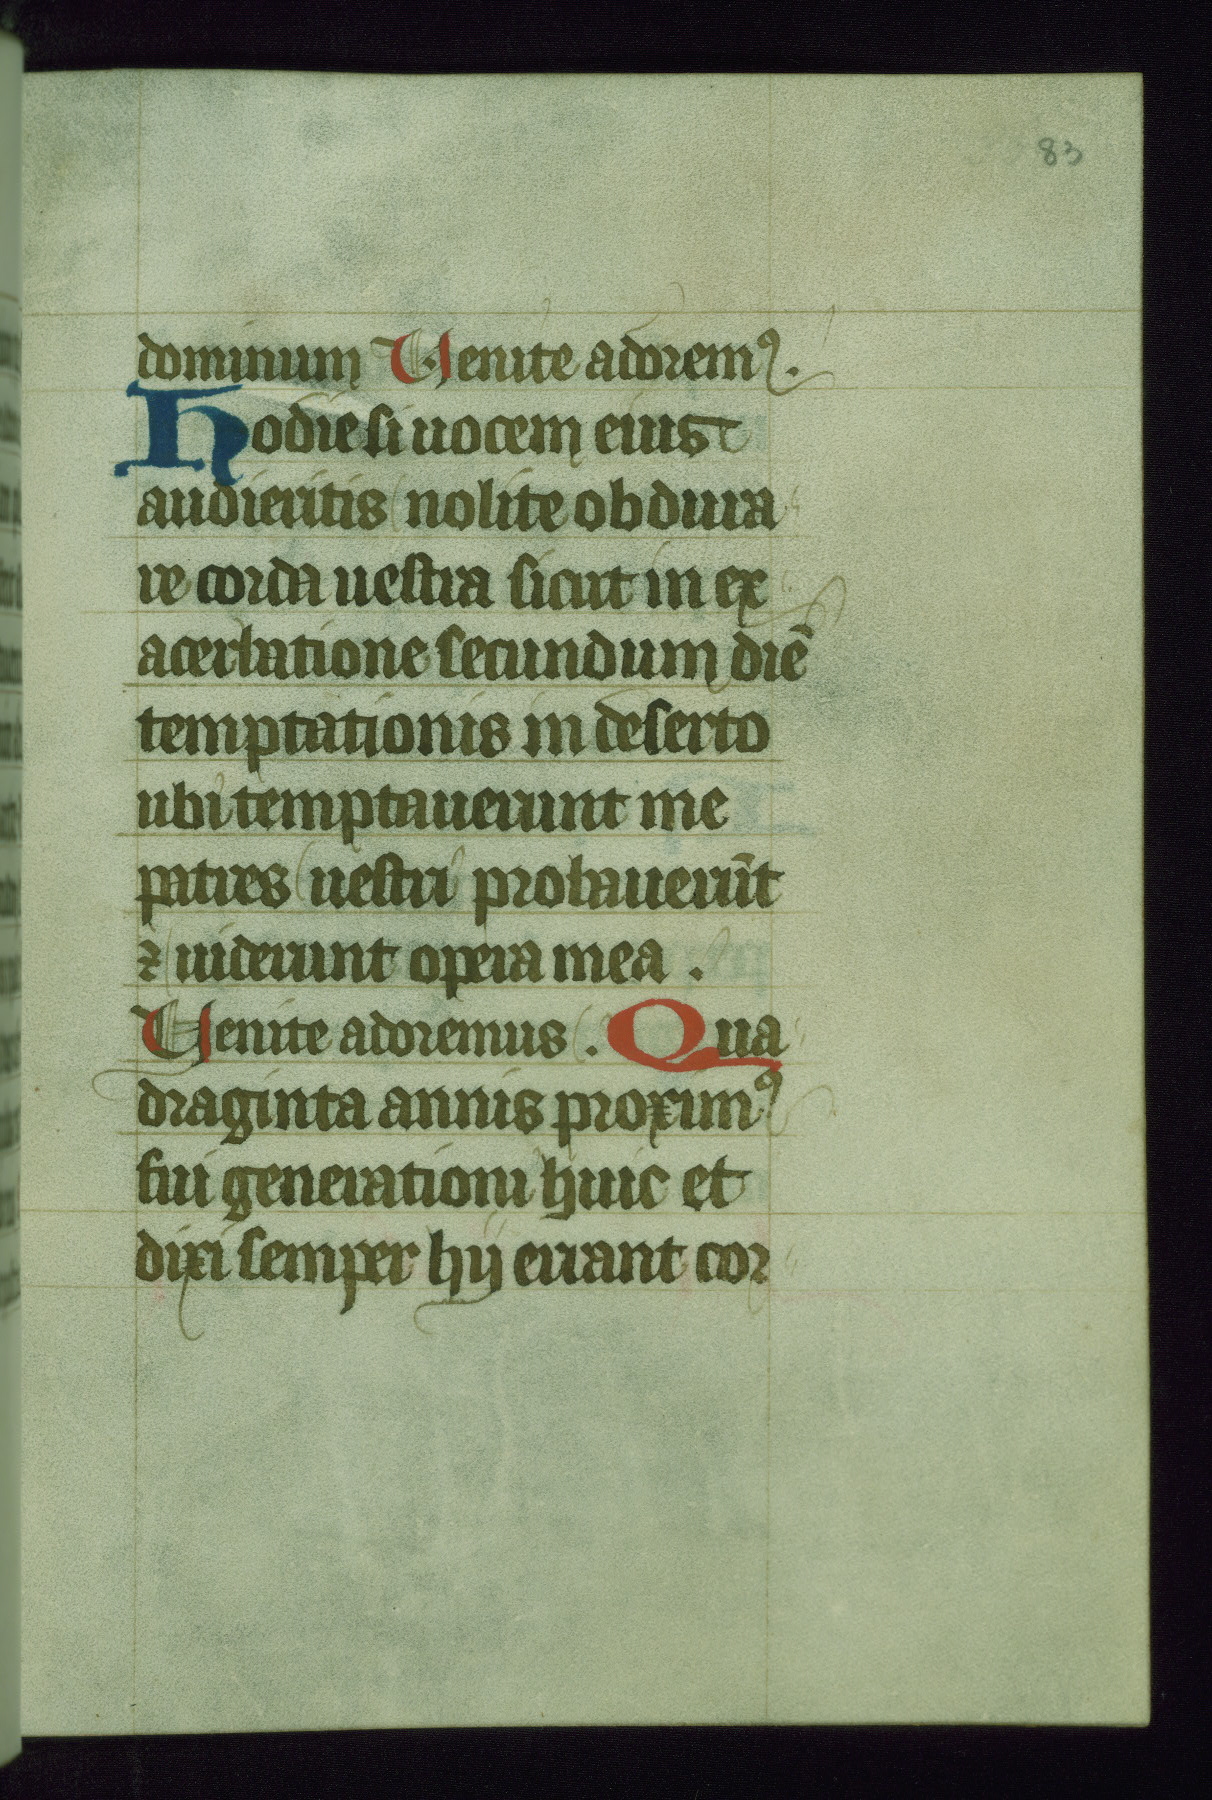 83
dominum Uenite adoremꝰ.
Hodie si uocem eius
audieritis nolite obdura
re corda uestra sicut in ex
acerbatione secundum diē
temptationis in deserto
ubi temptauerunt me
patres uestri probauerūt
⁊ uiderunt opera mea .
Uenite adoremus . Qua
draginta annis proximꝰ
fui generationi huic et
dixi semper hij errant cor